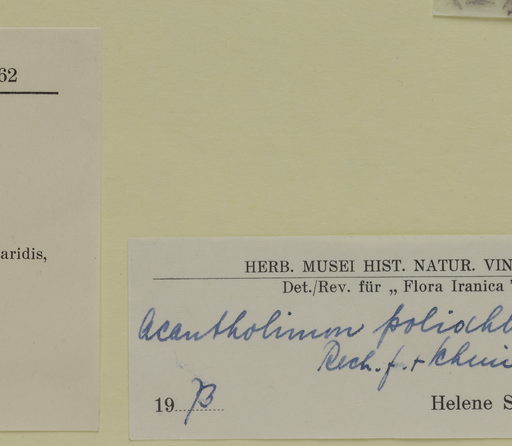 62
aridis,
HERB. MUSEI HIST. NATUR. VIN
Det./Rev. für „ Flora Iranica "
Acantholimon poliochl
Rech. f. +
1973
Helene S